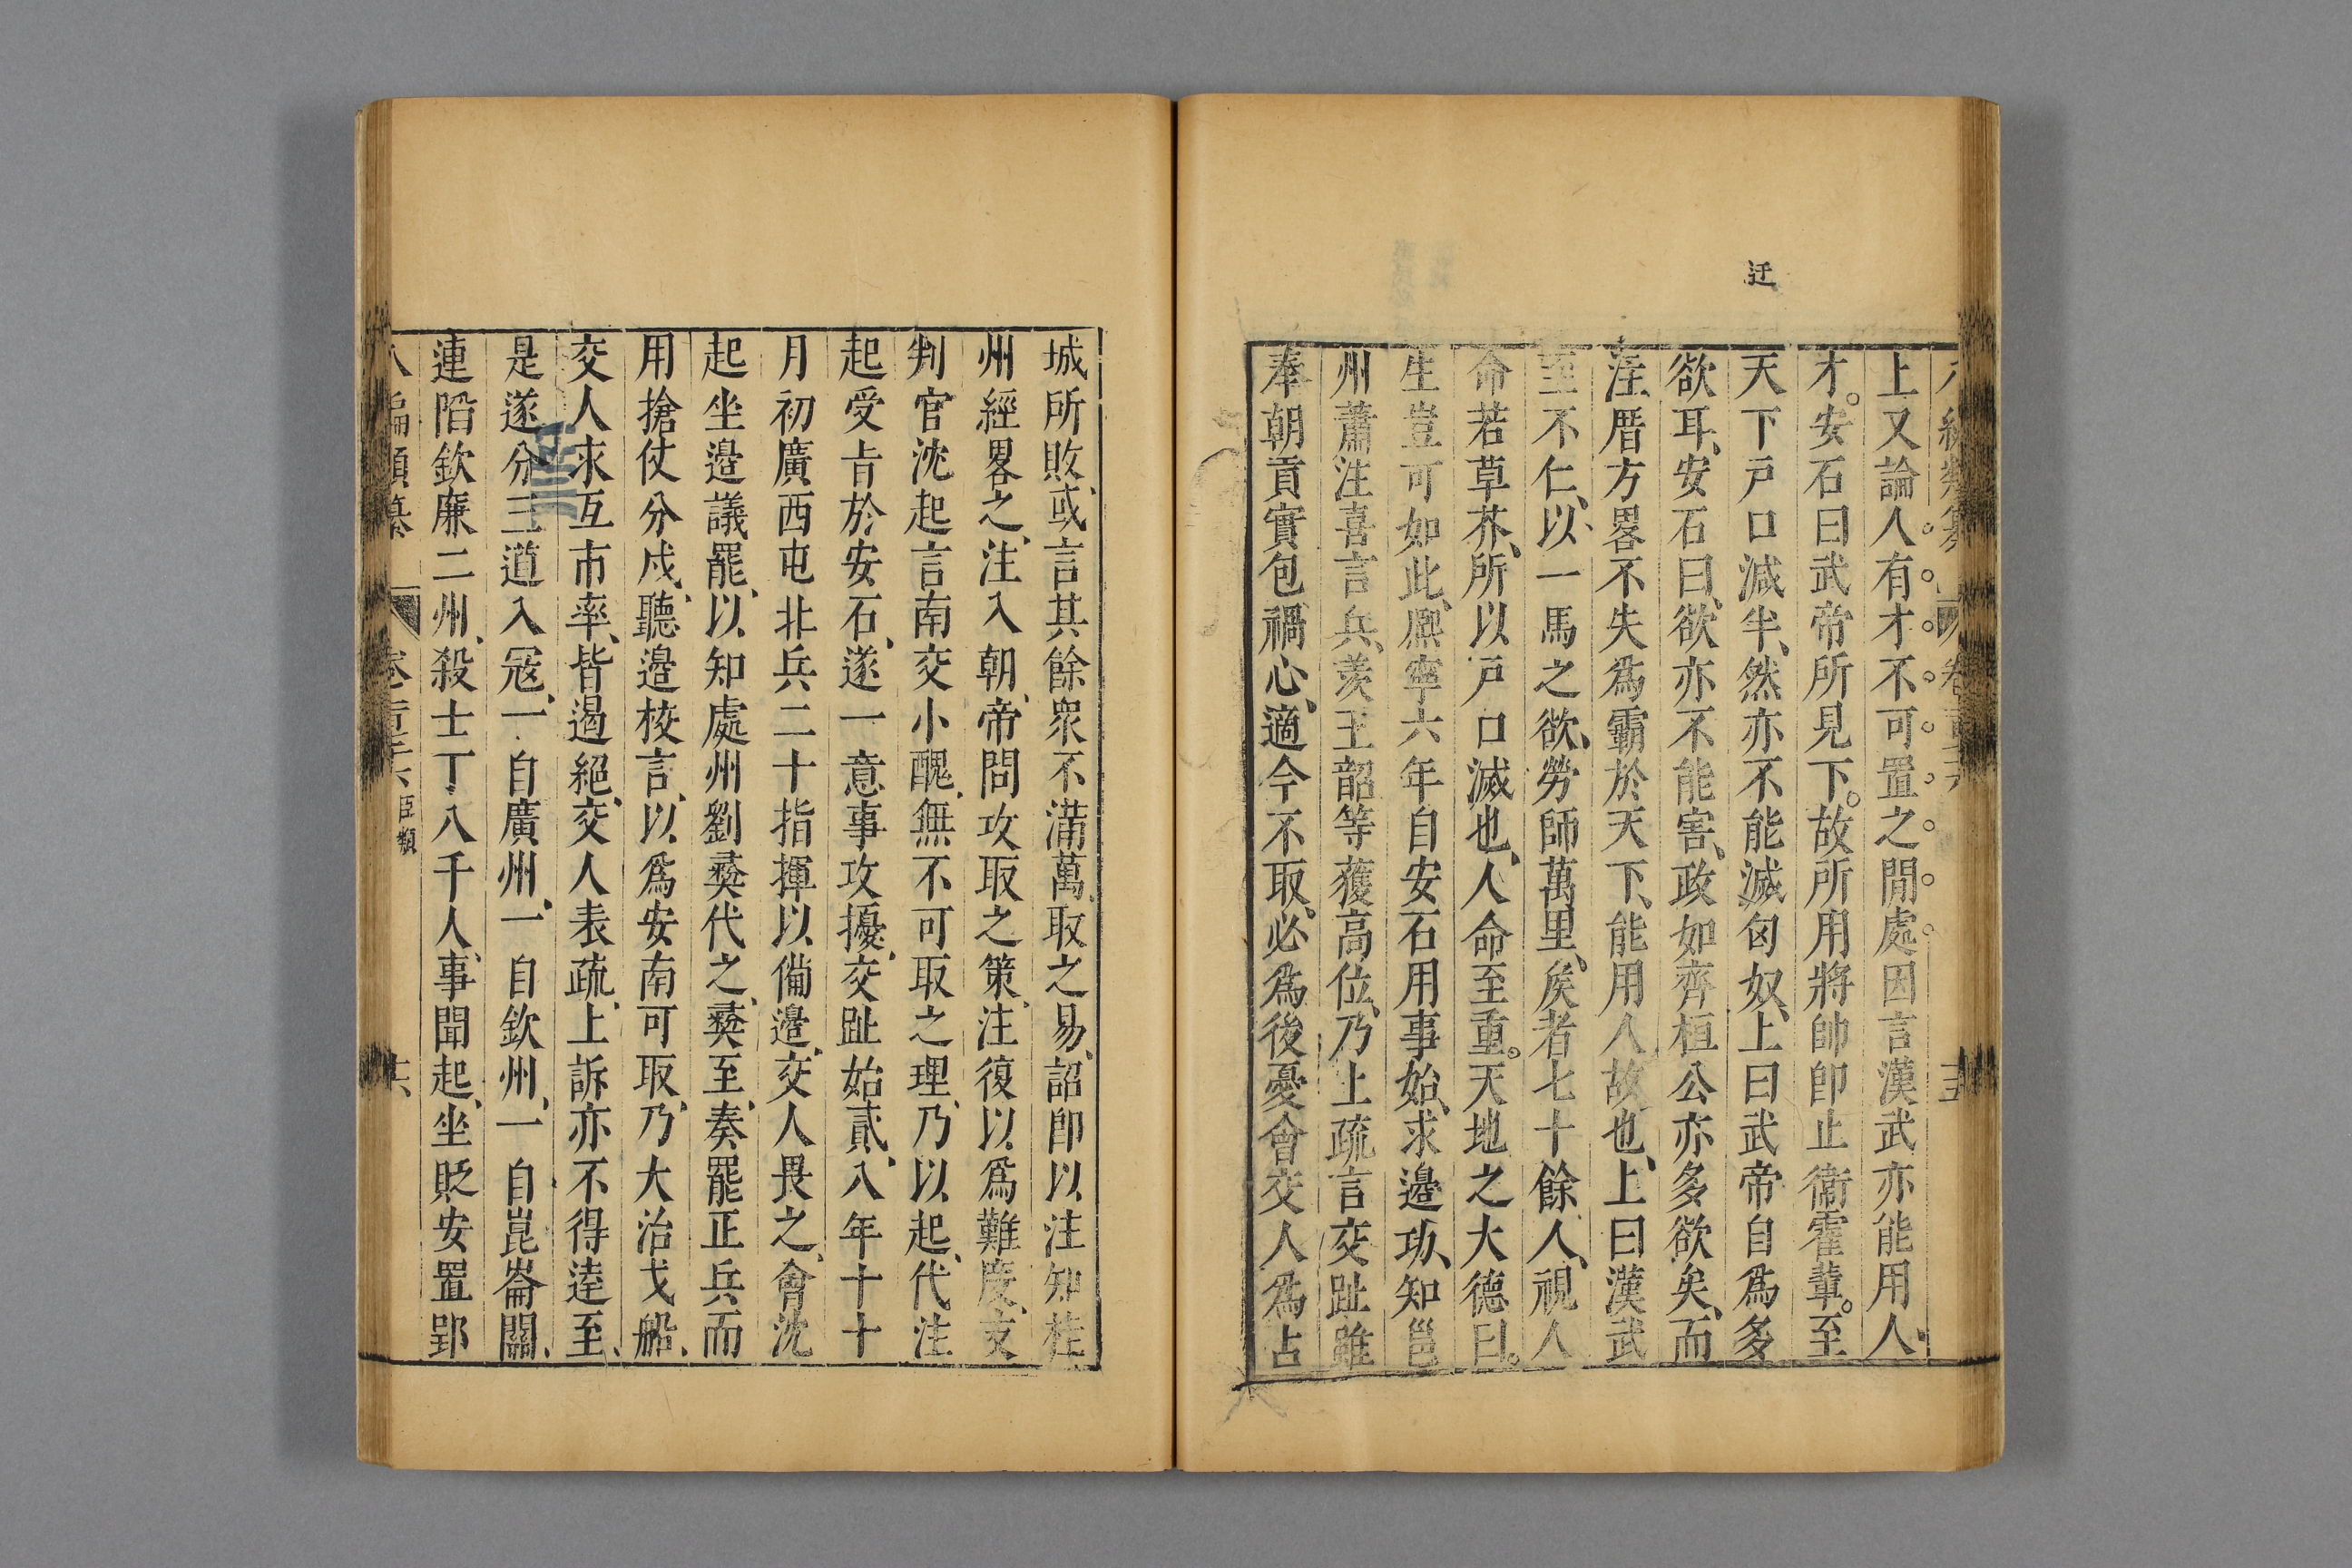 迂
上又論人有才不可置之閒處因言漢武亦能用人
才。安石曰武帝所見下。故所用將帥即止衞霍輩。至
天下戸口減半、然亦不能滅匈奴、上曰武帝自爲多
欲耳、安石曰、欲亦不能害、政如齊桓公亦多欲矣、而
注厝方畧不失爲霸於天下、能用人故也、上曰漢武
至不仁、以一馬之欲、勞師萬里、矦者七十餘人、視人
命若草芥、所以戸口滅也、人命至重。天地之大德曰。
生豈可如此、熈寧六年自安石用事始、求邉功、知邕
州蕭注喜言兵、羡王韶等獲高位、乃上疏言交趾雖
奉朝貢實包禍心、適今不取、必爲後憂會交人爲占
城所敗、或言其餘衆不滿萬、取之易、詔卽以注知桂
州經畧之、注入朝、帝問攻取之策、注復以爲難、度支
判官沈起言南交小醜、無不可取之理、乃以起、代注
起受㫖於安石、遂一意事攻擾、交趾始貳、八年十十
月初廣西屯北兵二十指揮以備邉、交人畏之、會沈
起坐邉議罷、以知處州劉彝代之、彝至、奏罷正兵而
用搶仗分戍、聽邉校言、以爲安南可取、乃大治戈船、
交人求互市率、皆遏絕、交人表疏、上訴亦不得逹至、
是遂分三道入冦、一自廣州、一自欽州、一自崑崙關、
連陷欽廉二州、殺士丁八千人、事聞起、坐貶安置郢
八編類纂 卷 臣類 十六